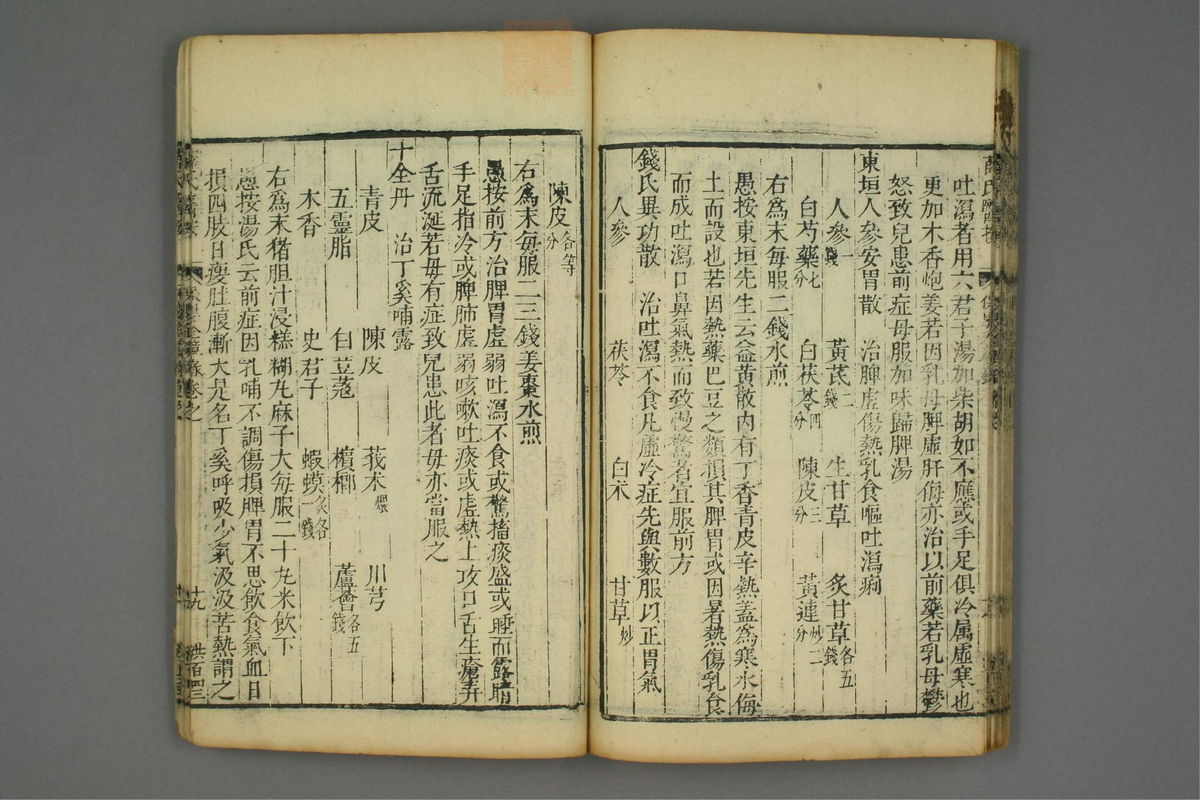 吐瀉者用六君子湯加柴胡如不應或手足俱冷属虛寒也
更加木香炮姜若因乳母脾虛肝侮亦治以前藥若乳母鬱
怒致兒患前症母服加味歸脾湯
東垣人參安胃散 治脾虛傷熱乳食嘔吐瀉痢
人參一錢 黃芪二錢 生甘草 炙甘草各五錢
白芍藥七分 白茯苓四分 陳皮三分 黃連炒二分
右為末每服二錢水煎
愚按東垣先生云益黃散内有丁香青皮辛熱蓋為寒水侮
土而設也若因熱藥巴豆之類損其脾胃或因暑熱傷乳食
而成吐瀉口鼻氣熱而致慢驚者宜服前方
錢氏異功散 治吐瀉不食凡虛冷症先與數服以正胃氣
人參 茯苓 白朮 甘草炒
陳皮各等分
右為末每服二三錢姜棗水煎
愚按前方治脾胃虛弱吐瀉不食或驚搐痰盛或睡而露睛
手足指冷或脾肺虛弱咳嗽吐痰或虛熱上攻口舌生瘡弄
舌流涎若母有症致兒患此者母亦當服之
十全丹 治丁奚哺露
青皮 陳皮 莪朮煨 川芎
五靈脂 白荳蔻 檳榔 蘆薈各五錢
木香 史君子 蝦蟆灸各一錢
右為末猪胆汁浸糕糊丸麻子大每服二十丸米飲下
愚按湯氏云前症因乳哺不調傷損脾胃不思飲食氣血日
損四肢日瘦肚腹漸大是名丁奚呼吸少氣汲汲苦熱謂之
十九